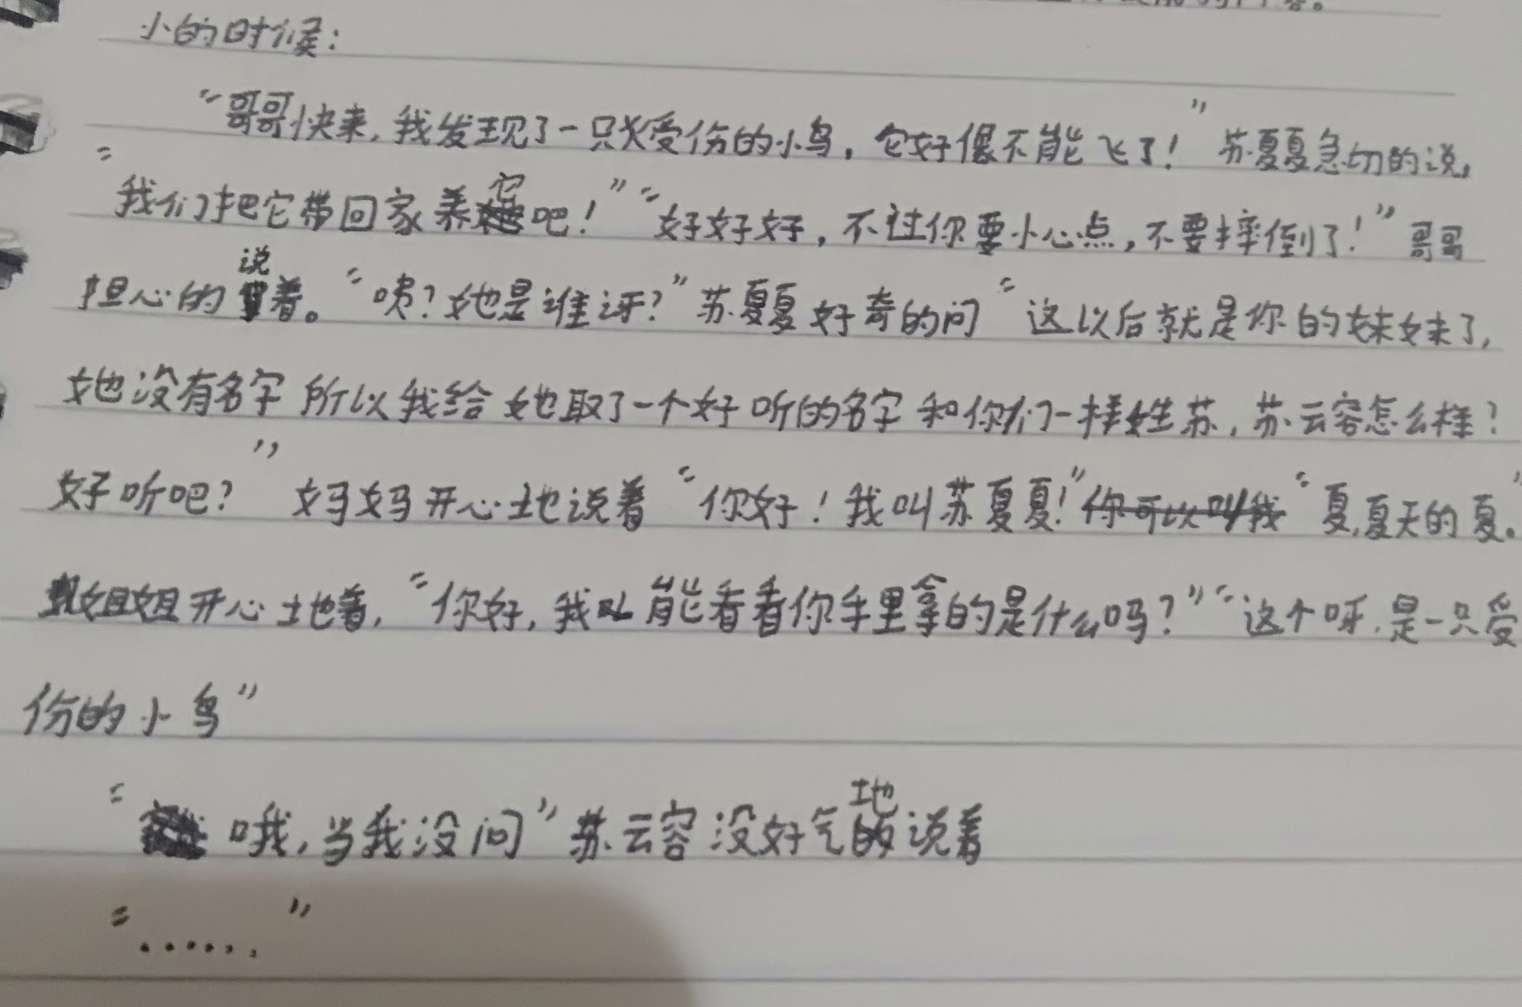 小的时候：
"哥哥快来，我发现了一只受伤的小鸟，它好像不能飞了！"苏夏夏急切的说，
"我们把它带回家养它吧！""好好好，不过你要小心点，不要摔倒了！"哥哥
担心的说着。"咦？她是谁讶？"苏夏夏好奇的问"这以后就是你的妹妹了，
她没有名字所以我给她取了一个好听的名字和你们一样姓苏，苏云容怎么样？
好听吧？"妈妈开心地说着"你好！我叫苏夏夏！"你可以叫我"夏，夏天的夏。"
姐姐开心地着，"你好，我能看看你手里拿的是什么吗？""这个呀，是一只受
伤的小鸟"
"哦，当我没问"苏云容没好气地说着
"……"